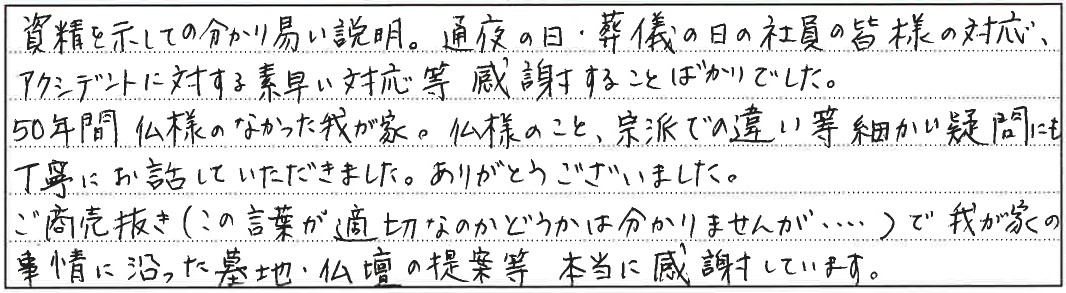 資精を示しての分かり易い説明。通夜の日・葬儀の日の社員の皆様の対応、
アクシデントに対する素早い対応等 感謝することばかりでした。
50年間 仏様のなかった我が家。仏様のこと、宗派での違い等細かい疑問にも
丁寧にお話していただきました。ありがとうございました。
ご商売抜き(この言葉が適切なのかどうかは分かりませんが・・・・)で我が家の
事情に沿った墓地・仏壇の提案等 本当に感謝しています。